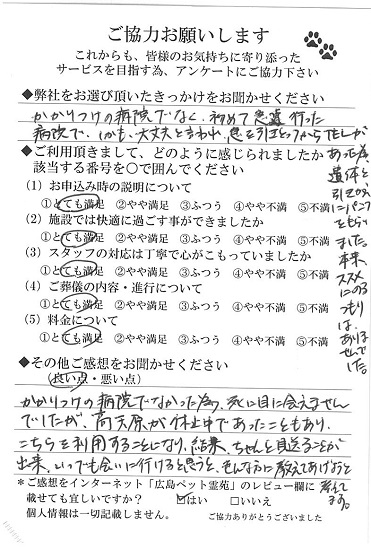 ご協力お願いします
これからも、皆様のお気持ちに寄り添った
サービスを目指す為、アンケートにご協力下さい
◆弊社をお選び頂いたきっかけをお聞かせください
かかりつけの病院でなく、初めて急遽行った
病院で、しかも、大丈夫と言われ、息を引きとってからでしか
あった為
遺体と
引きかえ
にパンフ
をもらい
ました。
本来、
ススメ
にのる
つもり
は、
ありま
せんで
した。
◆ご利用頂きまして、どのように感じられましたか
該当する番号を○で囲んでください
(1) お申込み時の説明について
①とても満足 ②やや満足 ③ふつう ④やや不満 ⑤不満
(2) 施設では快適に過ごす事ができましたか
①とても満足 ②やや満足 ③ふつう ④やや不満 ⑤不満
(3) スタッフの対応は丁寧で心がこもっていましたか
①とても満足 ②やや満足 ③ふつう ④やや不満 ⑤不満
(4) ご葬儀の内容・進行について
①とても満足 ②やや満足 ③ふつう ④やや不満 ⑤不満
(5) 料金について
①とても満足 ②やや満足 ③ふつう ④やや不満 ⑤不満
◆その他ご感想をお聞かせください
(良い点・悪い点)
かかりつけの病院でなかった為、死に目に会えません
でしたが、高天原が休止中であったこともあり、
こちらを利用することになり、結果、ちゃんと見送ることが
出来、いつでも会いに行けると思うと、そんな方に教えてあげようと
考えて
ます。
*ご感想をインターネット「広島ペット霊苑」のレビュー欄に
載せても宜しいですか? ☑はい □いいえ
個人情報は一切記載しません。 ご協力ありがとうございました